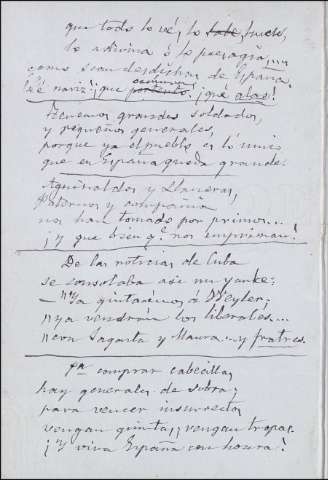 que todo lo vé, lo sabe huele,
lo adivina ó lo presagia,...
como sean desdichas de España.
¡Qé nariz! ¡que portento comunes ¡qué alas!
Tenemos grandes soldados,
y pequeños generales,
porque ya el pueblo es lo único
que en España queda grande.
Aguinaldos y Llaneras,
Paternos y compañía
nos han tomado por primos....
¡Y que bien qe. nos empriman!
De las noticias de Cuba
se consolaba asi un yanke:
—"Ya quitaremos á Weyler;
"ya vendrán los liberales...
"con Sagasta y Maura.. y fratres.
Pa comprar cabecillas,
hay generales de sobra;
para vencer insurrectos
vengan quintas, vengan tropas.
¡Y viva España con honra!